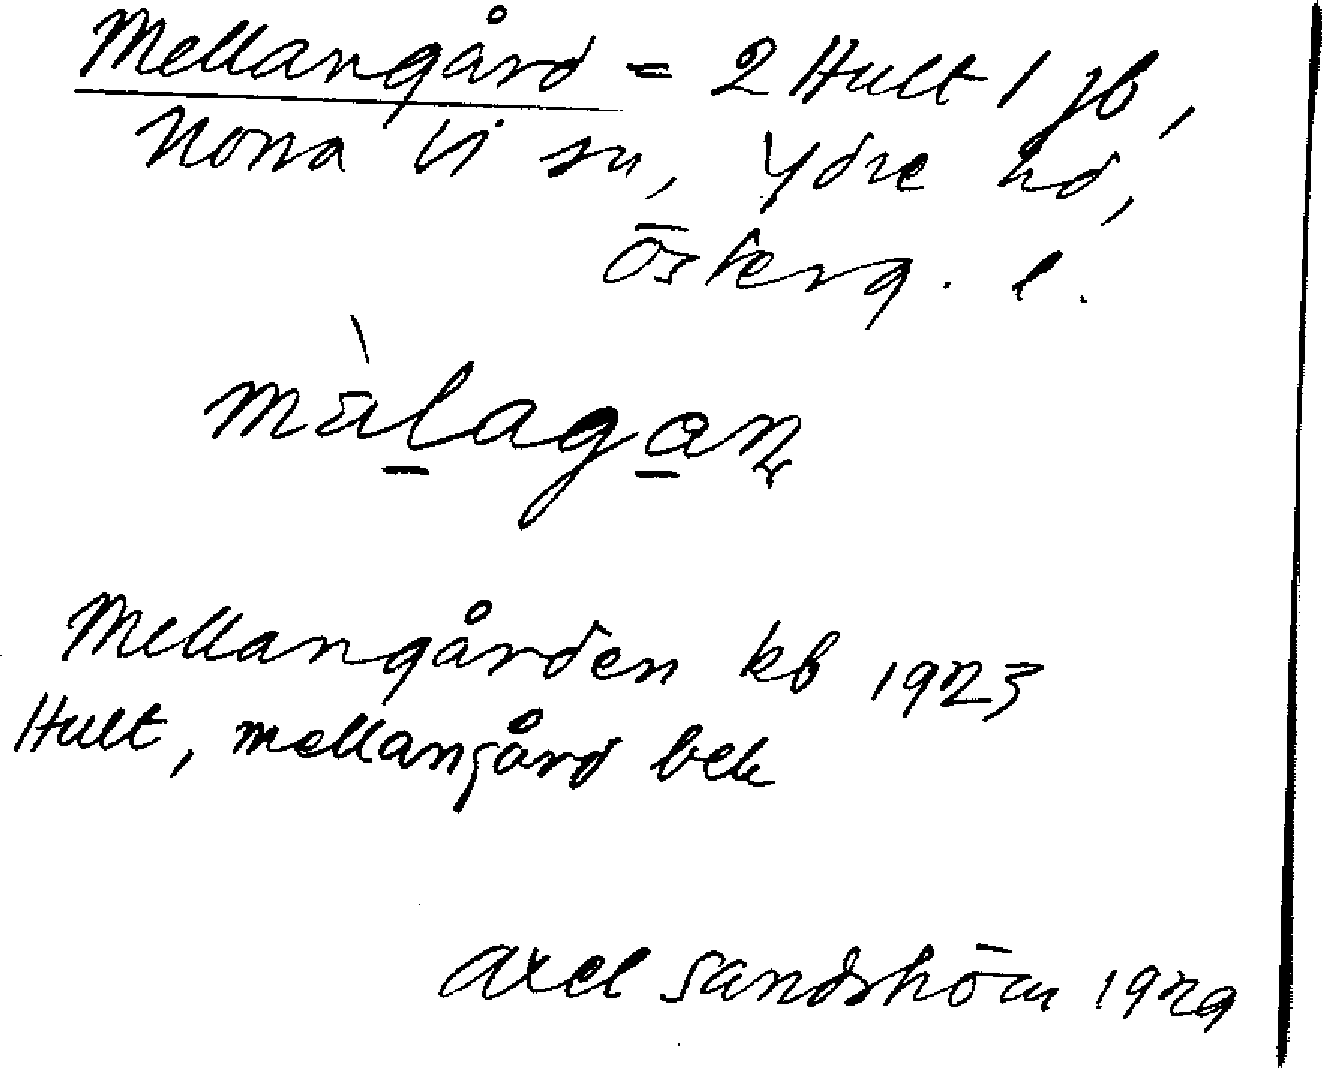 Mellangård = 2 Hult 1 jb,
Norra Vi sn, Ydre hd,
Österg. l.
màlagan
Mellangården kb 1923
Hult, mellangård bek
Axel Sandström 1929